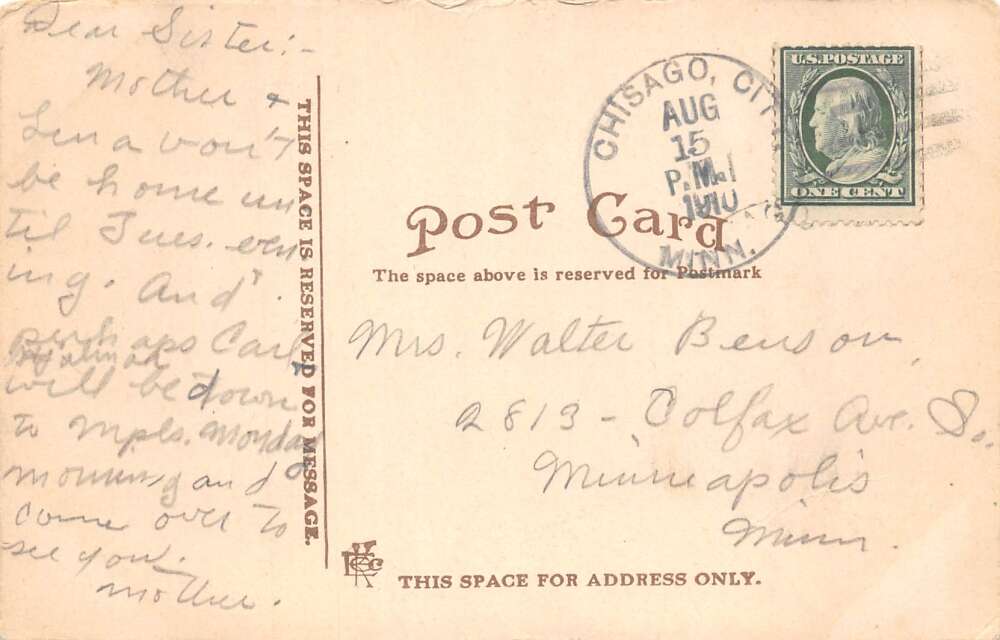 Dear Sister:-
Mother &
Lena won't
be home un
til Tues. even
ing. And
perhaps Carl
will be down
to Mpls. Monday
morning and
come over to
see you.
Mother.
THIS SPACE IS RESERVED FOR MESSAGE.
CHISAGO, CITY
AUG
15
P.M.
1910
MINN.
U.S. POSTAGE
ONE CENT
Post Card
The space above is reserved for Postmark
Mrs. Walter Benson,
2813 - Colfax Ave. So.,
Minneapolis
Minn.
THIS SPACE FOR ADDRESS ONLY.